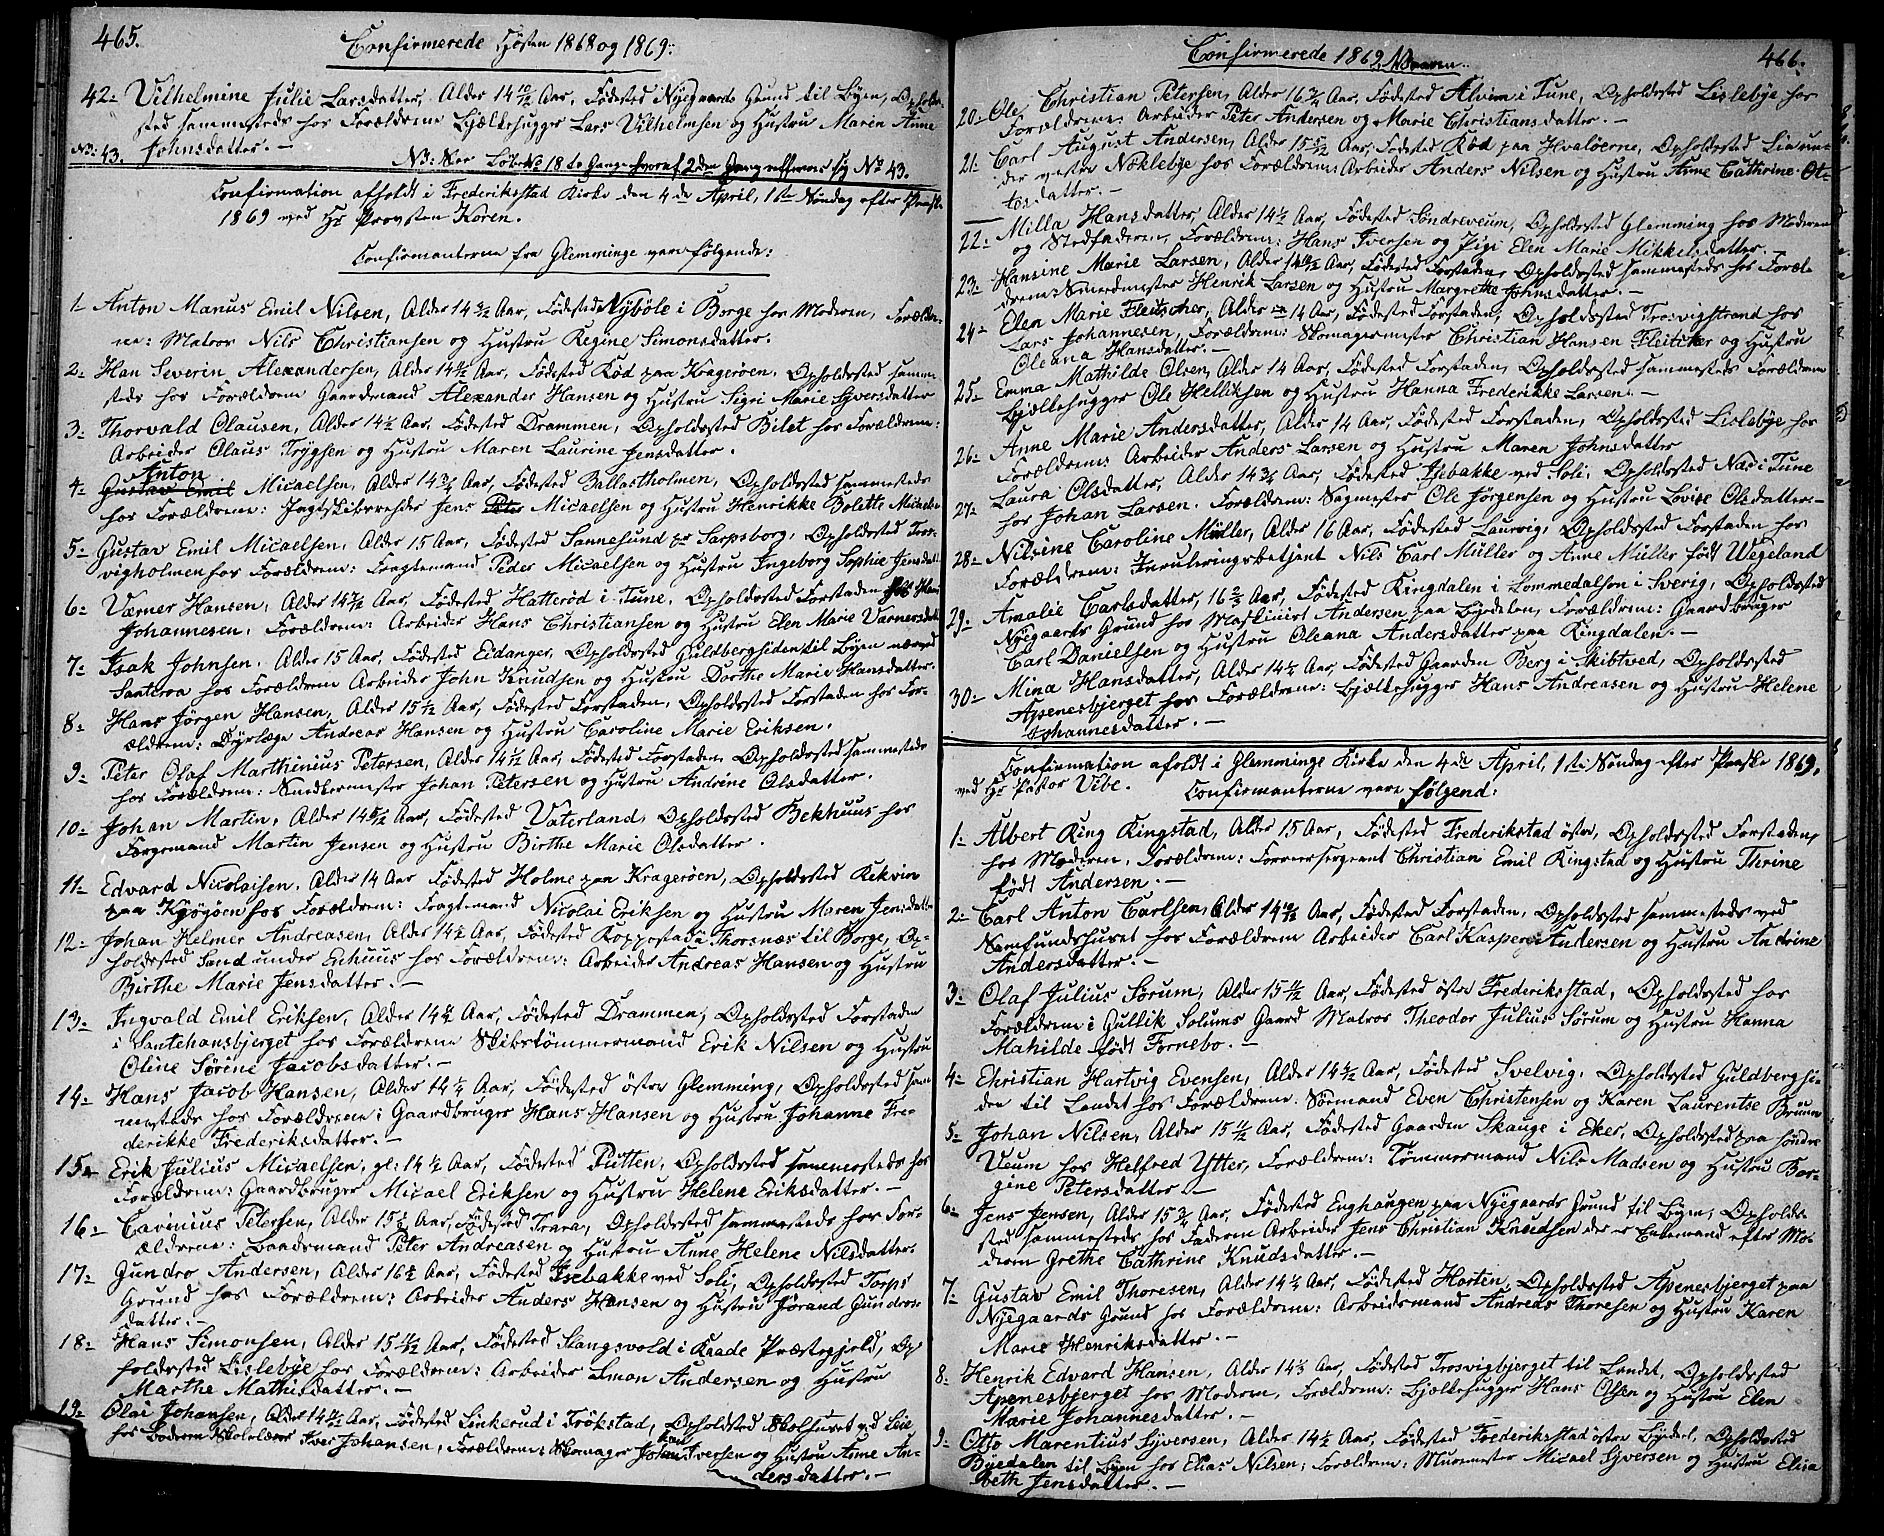 465.
Confirmerede Høsten 1868 og 1869:
42= Vilhelmine Julie Larsdatter, Alder 14 10/12 Aar, Fødested Nyegaards Grund til Byen, Opholds-
sted sammesteds hos Forældrene Bjælkehugger Lars Vilhelmsen og Hustru Maren Anne
Johnsdatter. —
N3: 43. N3: 18 de Gange hvoraf 2den Gang No 43.
Confirmation afholdt i Frederikstad Kirke den 4de April, 1ste Søndag efter Paaske
1869 ved Hr Provsten Koren.
Confirmanterne fra Glemminge vare følgende:
1= Anton Manus Emil Nilsen, Alder 14 Aar, Fødested Nyböle i Borge hos Moderen, Forældre-
ne: Matros Nils Christiansen og Hustru Regine Simonsdatter.
2= Han Severin Alexandersen, Alder 14 Aar, Fødested Röd paa Kragerøen, Opholdssted samme-
steds hos Forældrene Gaardmand Alexander Hansen og Hustru Sigri Marie Syversdatter
3= Thorvald Clausen, Alder 14 Aar, Fødested Drammen, Opholdssted Bilet hos Forældrene:
Arbeider Claus Trygsen og Hustru Maren Laurine Jensdatter.
Anton
4= Gustav Emil Micaelsen, Alder 14 Aar, Fødested Ballastholmen, Opholdssted sammesteds
hos Forældrene: Jagtskibsreder Jens Peter Micaelsen og Hustru Henrikke Bolette
5= Gustav Emil Micaelsen, Alder 15 Aar, Fødested Sannesund pr Sarpsborg, Opholdssted Tros-
vigholmen hos Forældrene: Fragtemand Peder Micaelsen og Hustru Ingeborg Sophie Jensdatt.
6= Værner Hansen, Alder 14 Aar, Fødested Hatteröd i Tune, Opholdssted Forstaden hos Hans
Johannesen, Forældrene: Arbeider Hans Christiansen og Hustru Elen Marie Varnersdatt.
7= Isak Johnsen, Alder 15 Aar, Fødested Eidanger, Opholdssted Guldbergsiden til Byen
hos Forældrene Arbeider John Knudsen og Hustru Dorthe Marie Hansdatter.
8= Hans Jörgen Hansen, Alder 15 Aar, Fødested Forstaden, Opholdssted Forstaden hos For-
ældrene: Dyrlæge Andreas Hansen og Hustru Caroline Marie Eriksen.
9= Peter Olaf Marthinius Petersen, Alder 14 Aar, Fødested Forstaden, Opholdssted sammesteds
hos Forældrene: Snedkermester Johan Petersen og Hustru Andrine Olsdatter.
10= Johan Martin, Alder 14 Aar, Fødested Vaterland, Opholdssted Bekhuus hos
Færgemand Martin Jensen og Hustru Birthe Marie Olsdatter.
11= Edvard Nicolaisen, Alder 14 Aar Fødested Holme paa Kragerøen, Opholdssted Rekvin
paa Kjøgøen hos Forældrene: Fragtemand Nicolai Eriksen og Hustru Maren Jensdatter
12= Johan Helmer Andreasen, Alder 14 Aar, Fødested i Thorsnæs til Borge, Op-
holdssted Sand under Enhuus hos Forældrene: Arbeider Andreas Hansen og Hustru
Birthe Marie Jensdatter. —
13= Ingvald Emil Eriksen, Alder 14 Aar, Fødested Drammen, Opholdssted Forstaden
i Santehansbjerget hos Forældrene Skibstömmermand Erik Nilsen og Hustru
Oline Sörine Jacobsdatter. —
14= Hans Jacob Hansen, Alder 14 Aar, Fødested östre Glemming, Opholdssted sam-
mesteds hos Forældrene: Gaardbruger Hans Hansen og Hustru Johanne Fre-
derikke Frederiksdatter. —
15= Erik Julius Micaelsen, gl: 14 Aar, Fødested Putten, Opholdssted sammesteds hos
Forældrene: Gaardbruger Micael Eriksen og Hustru Helene Eriksdatter. —
16= Cavinius Petersen, Alder 15 Aar, Fødested Trara, Opholdssted sammesteds hos For-
ældrene: Baadsmand Peter Andreasen og Hustru Anne Helene Nilsdatter.
17= Gundro Andersen, Alder 16 Aar, Fødested Isebakke ved Soli, Opholdssted Torps
Grund hos Forældrene: Arbeider Anders Hansen og Hustru Jørand Gundros-
datter. —
18= Hans Simonsen, Alder 15 Aar, Fødested Slangsvold i Raade Præstegjeld, Op-
holdssted Lislebye hos Forældrene: Arbeider Simon Andersen og Hustru
Marthe Mathisdatter. —
19= Olai Johansen, Alder 14 Aar, Fødested Linkerud i Trökstad, Opholdssted Skolhuset ved Leie
hos Broderen Skolelærer Iver Johansen, Forældrene: Skomager Johan Iversen og Hustru Anne An-
dersdatter. —
Confirmerede 1869 Vaaren.
466.
20= Ole Christian Petersen, Alder 16 Aar, Fødested Alvim i Tune, Opholdssted Lislebye hos
Forældrene: Arbeider Peter Andersen og Marie Christiansdatter. —
21= Carl August Andersen, Alder 15 Aar, Fødested Röd paa Hvaløerne, Opholdssted Lie un-
der vestre Nöklebye hos Forældrene: Arbeider Anders Nilsen og Hustru Anne Cathrine Ot-
tosdatter. —
22= Milla Hansdatter, Alder 14 1/2 Aar, Fødested Söndreveum, Opholdssted Glemming hos Moderen
og Stedfaderen, Forældrene: Hans Iversen og Pige Elen Marie Mikkelsdatter. —
23= Hansine Marie Larsen, Alder 14 Aar, Fødested Forstaden, Opholdssted sammesteds hos Foræl-
drene: Smedmester Henrik Larsen og Hustru Margrethe Johnsdatter. —
24= Elen Marie Fleitscher, Alder 14 Aar, Fødested Forstaden, Opholdssted Trosvigstrand hos
Lars Johannesen, Forældrene: Skomagermester Christian Hansen Fleitscher og Hustru
Oleana Hansdatter. —
25= Emma Mathilde Olsen, Alder 14 Aar, Fødested Forstaden, Opholdssted sammesteds Forældrene
Bjælkehugger Ole Helliksen og Hustru Hanna Frederikke Larsen. —
26= Anne Marie Andersdatter, Alder 14 Aar, Fødested Forstaden, Opholdssted Lislebye hos
Forældrene Arbeider Anders Larsen og Hustru Maren Johnsdatter
27= Laura Olsdatter, Alder 14 Aar, Fødested Isebakke ved Soli, Opholdssted Næs i Tune
hos Johan Larsen. Forældrene: Sagmester Ole Jörgensen og Hustru Lovise Olsdatter. —
28= Nilsine Caroline Müller, Alder 16 Aar, Fødested Laurvig, Opholdssted Forstaden hos
Forældrene: Inrulleringsbetjent Nils Carl Müller og Anne Müller født Wegeland
29= Amalie Carlsdatter, 16 Aar, Fødested Kingdalen i Lommedalson i Sverig, Opholdssted
Nyegaards Grund hos Maskinist Andersen paa Byedelen, Forældrene: Gaardbruger
Carl Danielsen og Hustru Oleana Andersdatter paa Kingdalen. —
30= Mina Hansdatter, Alder 14 Aar, Fødested Gaarden Berg i Skibtved, Opholdssted
Apenesbjerget hos Forældrene: Bjælkehugger Hans Andreasen og Hustru Helene
Johannesdatter. —
Confirmation afholdt i Glemminge Kirke den 4de April, 1ste Søndag efter Paaske 1869.
ved Hr Pastor Vibe. Confirmanterne vare følgend:
1= Albert Ring Ringstad, Alder 15 Aar, Fødested Frederikstad östre, Opholdssted Forstaden,
hos Moderen, Forældrene: Christian Emil Ringstad og Hustru Thrine
født Andersen. —
2= Carl Anton Carlsen, Alder 14 Aar, Fødested Forstaden, Opholdssted sammesteds ved
Samfundshuset hos Forældrene Arbeider Carl Kasperg Andersen og Hustru Andrine
Andersdatter. —
3= Olaf Julius Sørum, Alder 15 Aar, Fødested östre Frederikstad, Opholdssted hos
Forældrene i Gullik Solums Gaard Matros Theodor Julius Sørum og Hustru Hanna
Mahilde født Fornebo. —
4= Christian Hartvig Evensen, Alder 14 Aar, Fødested Svelvig, Opholdssted Guldbergsi-
den til Landet hos Forældrene: Sömand Even Christensen og Karen Laurentse Bruun
5= Johan Nilsen, Alder 15 Aar, Fødested Gaarden Skauge i Eker, Opholdssted paa söndre
Veum hos Helfred Ytter, Forældrene: Tømmermand Nils Madsen og Hustru Bor-
gine Petersdatter —
6= Jens Jensen, Alder 15 Aar, Fødested Enghaugen paa Nyegaards Grund til Byen, Opholds-
sted sammesteds hos Faderen Arbeider Jens Christian Knudsen der er Enkemand efter Mo-
deren Grethe Cathrine Knudsdatter. —
7= Gustav Emil Thoresen, Alder 14 Aar, Fødested Horten, Opholdssted Apenesbjerget paa
Nyegaards Grund hos Forældrene: Arbeidsmand Andreas Thoresen og Hustru Karen
Marie Henriksdatter. —
8= Henrik Edvard Hansen, Alder 14 Aar, Fødested Trosvigbjerget til Landet, Opholdssted
Apenesbjerget hos Moderen, Forældrene: Bjælkehugger Hans Olsen og Hustru Elen
Marie Johannesdatter. —
9= Otto Marentius Syversen, Alder 14 1/2 Aar, Fødested Frederikstad østre Byedel, Opholdssted
Byedalen til Byen hos Elias Nilsen, Forældrene: Muurmester Micael Syversen og Hustru Elisa
beth Jensdatter. —